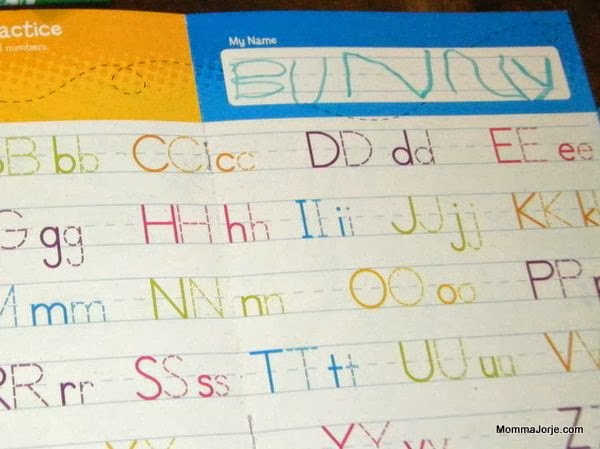 actice
d numbers.
My Name
BUNNY
B b b C C c c D D d d E E e e
G g g H H h h I I i i J J j j K K k
M m m m N N n n O O o o P P
R R r r S S s s T T t t U U u u V V
Y Y y y Z
MommaJorje.com